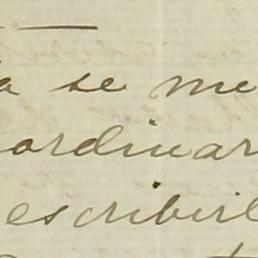 a se me
ordinar
escribirl